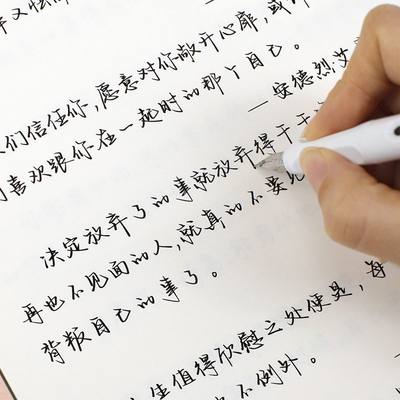 又怯懦
们信任你，愿意对你敞开心扉，或许
喜欢跟你在一起时的那个自己。
—安德烈·艾
决定放弃了的事就放弃得干干
再也不见面的人，就真的不要见
背叛自己的事了。
生值得欣慰之处便是，每
不例外。